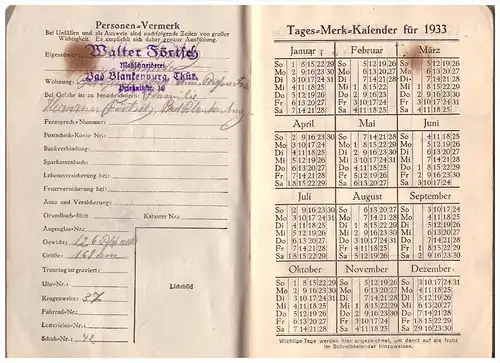 Personen-Vermerk
Bei Unfällen und als Ausweis sind nachfolgende Zeilen von großer
Wichtigkeit. Es empfiehlt sich daher genaue Ausfüllung.
Eigentümer:
Walter Förtsch
Maßschneiderei
Wohnung: Bad Blankenburg, Thür.
10
Bei Gefahr ist zu benachrichtigen: Familie
Hermann Förtsch, Bad Blankenburg
Fernsprech-Nummer:
Postscheck-Konto Nr.:
Bankverbindung:
Sparkassenbuch:
Lebensversicherung bei:
Feuerversicherung bei:
Auto und Versicherung:
Grundbuch-Blatt: Kataster Nr.:
Augenglas-Nr.:
Gewicht: 126
Größe: 168 cm
Trauring ist graviert:
Uhr-Nr.:
Kragenweite: 37
Fahrrad-Nr.:
Lotterielos-Nr.:
Schuh-Nr.: 42
Lichtbild
Tages-Merk-Kalender für 1933
Januar Februar März
So 1 8 15 22 29 So 5 12 19 26 So 5 12 19 26
Mo 2 9 16 23 30 Mo 6 13 20 27 Mo 6 13 20 27
Di 3 10 17 24 31 Di 7 14 21 28 Di 7 14 21 28
Mi 4 11 18 25 Mi 1 8 15 22 Mi 1 8 15 22 29
Do 5 12 19 26 Do 2 9 16 23 Do 2 9 16 23 30
Fr 6 13 20 27 Fr 3 10 17 24 Fr 3 10 17 24 31
Sa 7 14 21 28 Sa 4 11 18 25 Sa 4 11 18 25
April Mai Juni
So 2 9 16 23 30 So 7 14 21 28 So 4 11 18 25
Mo 3 10 17 24 Mo 1 8 15 22 29 Mo 5 12 19 26
Di 4 11 18 25 Di 2 9 16 23 30 Di 6 13 20 27
Mi 5 12 19 26 Mi 3 10 17 24 31 Mi 7 14 21 28
Do 6 13 20 27 Do 4 11 18 25 Do 1 8 15 22 29
Fr 7 14 21 28 Fr 5 12 19 26 Fr 2 9 16 23 30
Sa 1 8 15 22 29 Sa 6 13 20 27 Sa 3 10 17 24
Juli August September
So 2 9 16 23 30 So 6 13 20 27 So 3 10 17 24
Mo 3 10 17 24 31 Mo 7 14 21 28 Mo 4 11 18 25
Di 4 11 18 25 Di 1 8 15 22 29 Di 5 12 19 26
Mi 5 12 19 26 Mi 2 9 16 23 30 Mi 6 13 20 27
Do 6 13 20 27 Do 3 10 17 24 31 Do 7 14 21 28
Fr 7 14 21 28 Fr 4 11 18 25 Fr 1 8 15 22 29
Sa 1 8 15 22 29 Sa 5 12 19 26 Sa 2 9 16 23 30
Oktober November Dezember
So 1 8 15 22 29 So 5 12 19 26 So 3 10 17 24 31
Mo 2 9 16 23 30 Mo 6 13 20 27 Mo 4 11 18 25
Di 3 10 17 24 31 Di 7 14 21 28 Di 5 12 19 26
Mi 4 11 18 25 Mi 1 8 15 22 29 Mi 6 13 20 27
Do 5 12 19 26 Do 2 9 16 23 30 Do 7 14 21 28
Fr 6 13 20 27 Fr 3 10 17 24 Fr 1 8 15 22 29
Sa 7 14 21 28 Sa 4 11 18 25 Sa 2 9 16 23 30
Wichtige Tage werden hier angezeichnet, um damit auf die Notiz
im Schreibkalender hinzuweisen.